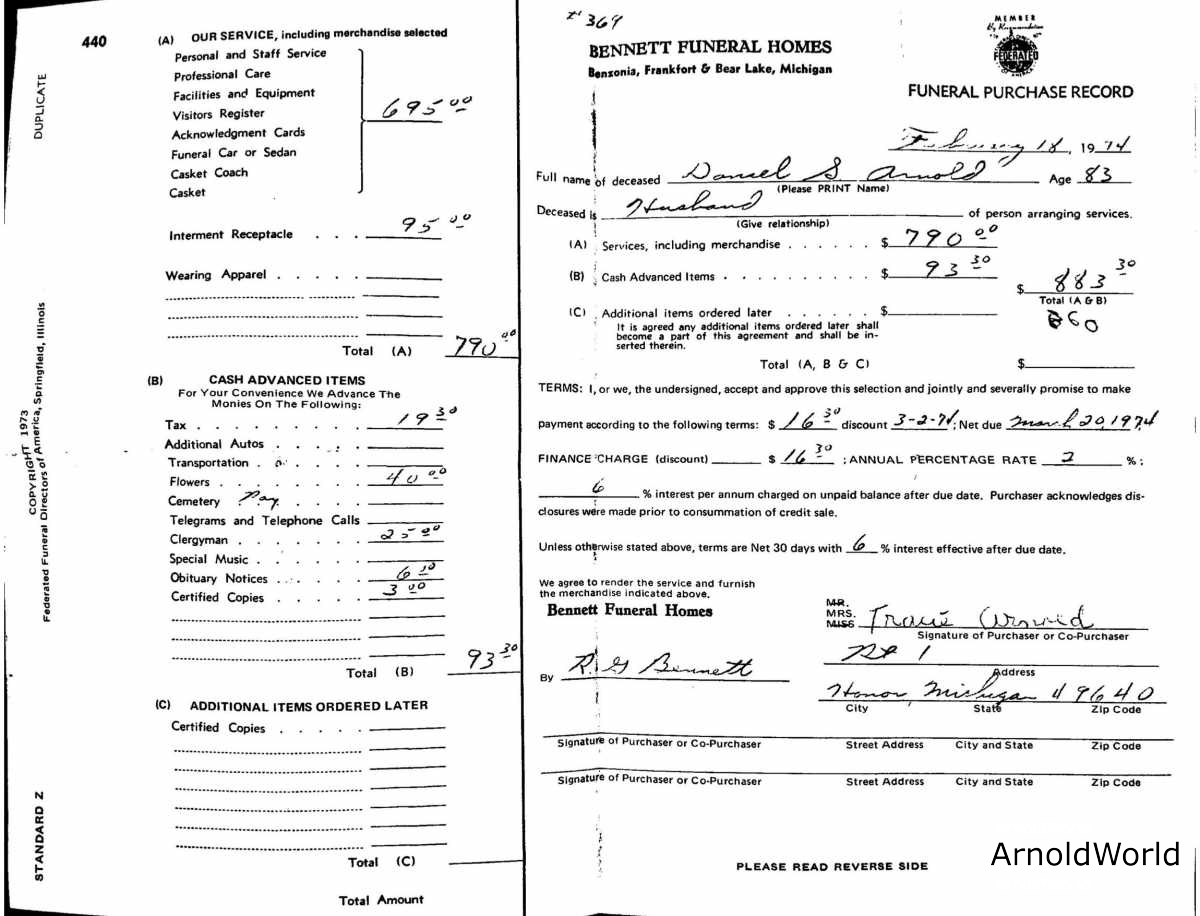 440
DUPLICATE
COPYRIGHT 1973
Federated Funeral Directors of America, Springfield, Illinois
STANDARD Z
(A) OUR SERVICE, including merchandise selected
Personal and Staff Service
Professional Care
Facilities and Equipment
Visitors Register 695 00
Acknowledgment Cards
Funeral Car or Sedan
Casket Coach
Casket
Interment Receptacle . . . 95 00
Wearing Apparel . . . . .
Total (A) 790 00
(B) CASH ADVANCED ITEMS
For Your Convenience We Advance The
Monies On The Following:
Tax . . . . . . . . . 19 30
Additional Autos . . . . .
Transportation . . . . . .
Flowers . . . . . . . . 40 00
Cemetery Pay . . . .
Telegrams and Telephone Calls
Clergyman . . . . . . . 25 00
Special Music . . . . . .
Obituary Notices . . . . . 6 00
Certified Copies . . . . . 3 00
Total (B) 93 30
(C) ADDITIONAL ITEMS ORDERED LATER
Certified Copies . . . . .
Total (C)
Total Amount
# 369
BENNETT FUNERAL HOMES
Benzonia, Frankfort & Bear Lake, Michigan
MEMBER
By
FEDERATED
OF AMERICA
FUNERAL PURCHASE RECORD
February 18, 1974
Full name of deceased Daniel S Arnold Age 83
(Please PRINT Name)
Deceased is Husband of person arranging services.
(Give relationship)
(A) Services, including merchandise . . . . . . $ 790 00
(B) Cash Advanced Items . . . . . . . . . . $ 93 30 $ 883 30
Total (A & B)
(C) Additional items ordered later . . . . . . $ 860
It is agreed any additional items ordered later shall
become a part of this agreement and shall be in-
serted therein.
Total (A, B & C) $
TERMS: I, or we, the undersigned, accept and approve this selection and jointly and severally promise to make
payment according to the following terms: $ 16 30 discount 3-2-74; Net due March 20, 1974
FINANCE CHARGE (discount) $ 16 30 ; ANNUAL PERCENTAGE RATE 2 %;
6 % interest per annum charged on unpaid balance after due date. Purchaser acknowledges dis-
closures were made prior to consummation of credit sale.
Unless otherwise stated above, terms are Net 30 days with 6 % interest effective after due date.
We agree to render the service and furnish
the merchandise indicated above.
Bennett Funeral Homes
By R G Bennett
MR.
MRS.
MISS Travis Arnold
Signature of Purchaser or Co-Purchaser
Rt 1
Address
Honor, Michigan 49640
City State Zip Code
Signature of Purchaser or Co-Purchaser Street Address City and State Zip Code
Signature of Purchaser or Co-Purchaser Street Address City and State Zip Code
PLEASE READ REVERSE SIDE
ArnoldWorld